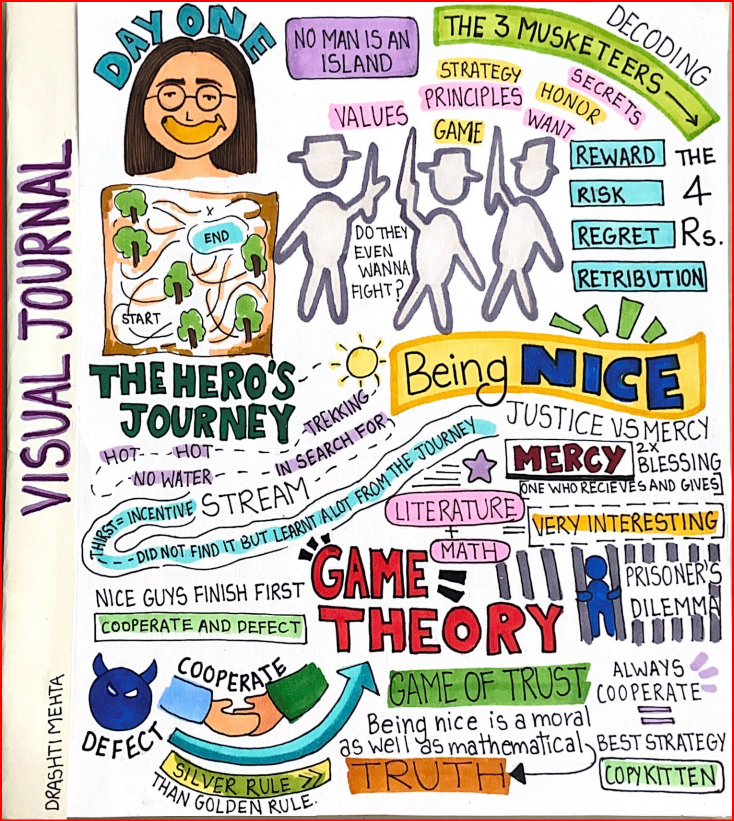 VISUAL JOURNAL
DRASHTI MEHTA
DAY ONE
NO MAN IS AN
ISLAND
DECODING
THE 3 MUSKETEERS
STRATEGY
SECRETS
PRINCIPLES
HONOR
VALUES
GAME
WANT
DO THEY
EVEN
WANNA
FIGHT?
REWARD
RISK
REGRET
RETRIBUTION
THE
4
Rs.
END
X
START
THE HERO'S
JOURNEY
TREKKING
HOT HOT
IN SEARCH FOR
NO WATER
STREAM
THIRST = INCENTIVE
DID NOT FIND IT BUT LEARNT A LOT FROM THE JOURNEY
Being NICE
JUSTICE VS MERCY
MERCY 2X
BLESSING
ONE WHO RECIEVES AND GIVES
LITERATURE
+
MATH
=
VERY INTERESTING
GAME
THEORY
PRISONER'S
DILEMMA
NICE GUYS FINISH FIRST
COOPERATE AND DEFECT
COOPERATE
DEFECT
SILVER RULE >>
THAN GOLDEN RULE.
GAME OF TRUST
Being nice is a moral
as well as mathematical
TRUTH
ALWAYS
COOPERATE
=
BEST STRATEGY
COPYKITTEN